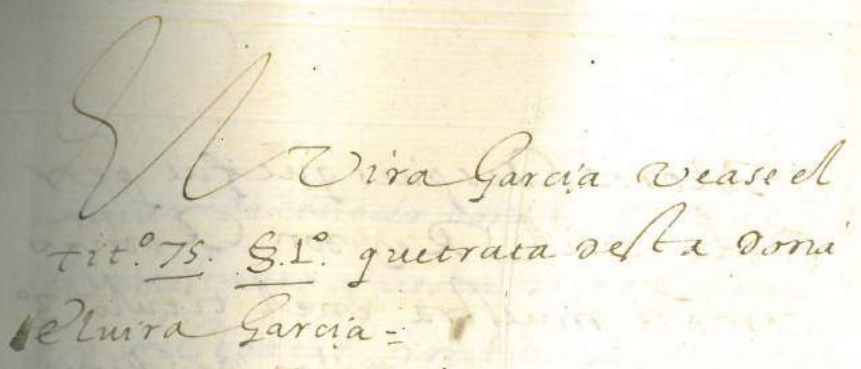 Elvira Garcia vease el
tit.º 75. §.1º. que trata desta doña
elvira Garcia =